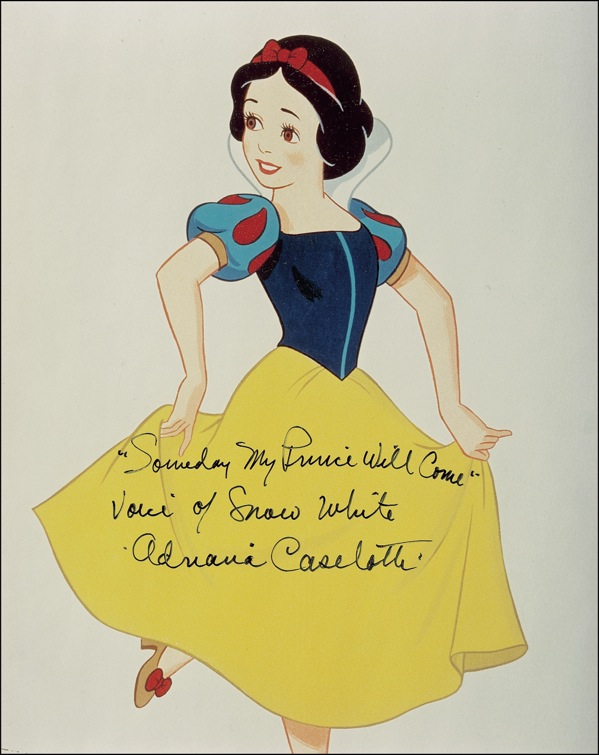 "Someday My Prince Will Come"
Voice of Snow White
"Adriana Caselotti"